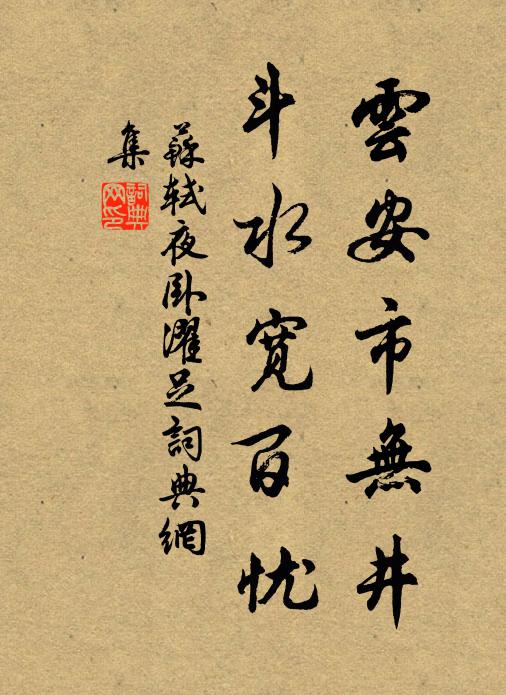 雲安市無井
斗水寬百忧
蘇軾夜卧濯足詞典網
集
詞典
网印